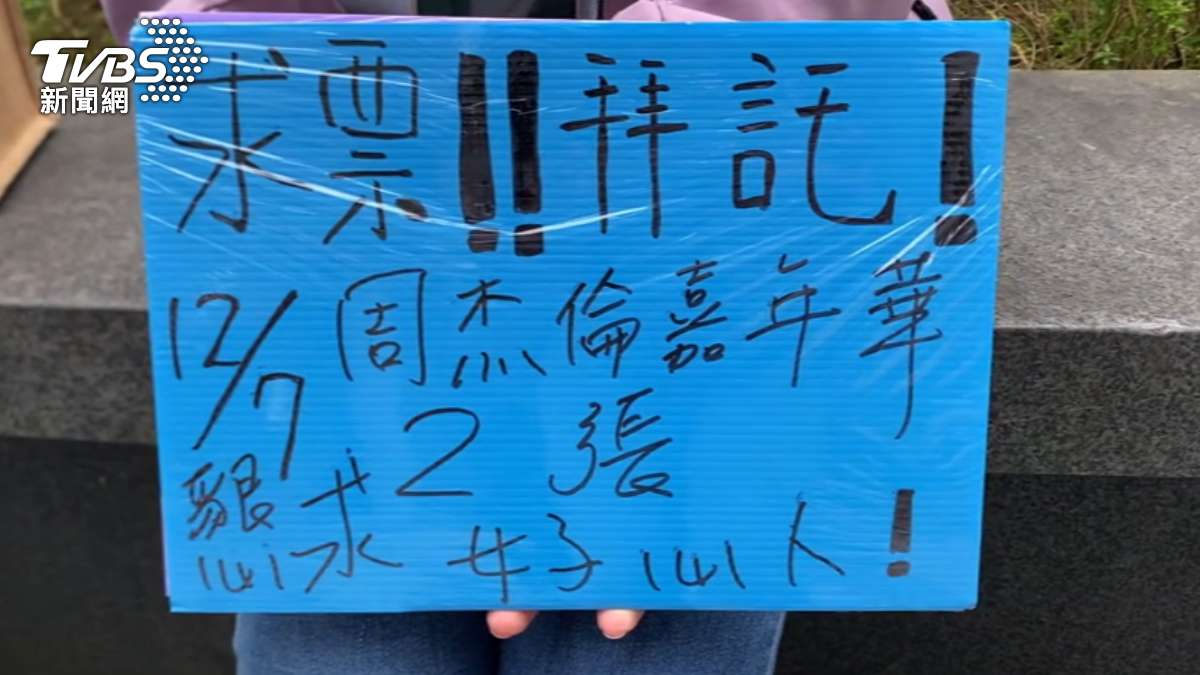 TVBS
新聞網
求票!!拜託!
12/7 周杰倫嘉年華
2張
懇求好心人!